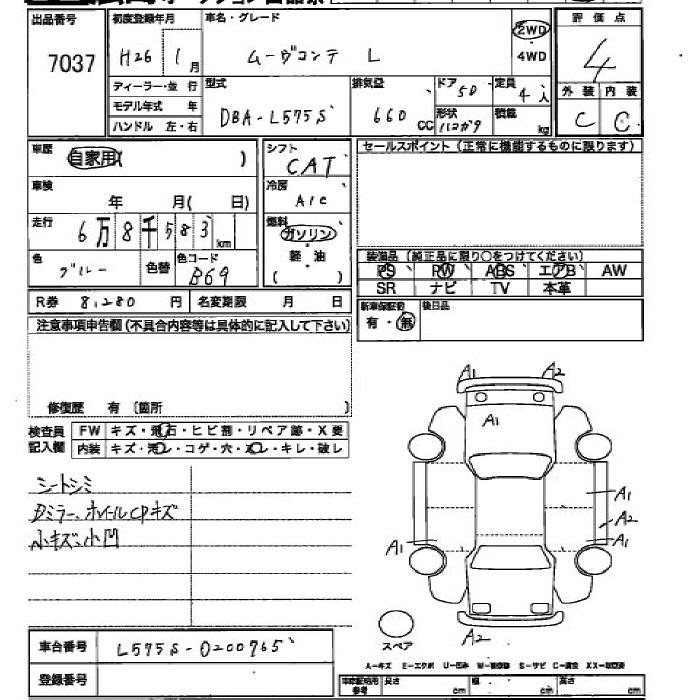 出品番号
7037
初度登録年月
H26 1 月
車名・グレード
ムーヴコンテ L
2WD
・
4WD
評価点
4
外装 内装
C C
ディーラー・並 行
モデル年式 年
ハンドル 左・右
型式
DBA-L575S
排気量
660 CC
ドア 5D
形状
ハコガタ
定員
4 人
積載
kg
車歴
自家用( )
車検
年 月( 日)
走行
6万8千583 km
色
ブルー
色替
色コード
B69
シフト
CAT
冷房
A/C
燃料
ガソリン
軽・油
( )
セールスポイント(正常に機能するものに限ります)
装備品(純正品に限り○をつけてください)
PS PW ABS エアB AW
SR ナビ TV 本革
R券 8,280 円 名変期限 月 日
新車保証書
有・無
後日品
注意事項申告欄(不具合内容等は具体的に記入して下さい)
修復歴 有 〔箇所 〕
検査員
記入欄
FW キズ・飛石・ヒビ割・リペア跡・X要
内装 キズ・汚レ・コゲ・穴・スレ・キレ・破レ
シートシミ
Dミラー、ホイールCPキズ
小キズ、小凹
A1 A2
A1
A1
A2
A1 A1
A2
スペア
A-キズ E-エクボ U-凹み W-補修跡 S-サビ C-腐食 XX-取替済
車台番号 L575S-0200765
登録番号
車車証明用
参考
長さ cm 幅 cm 高さ cm